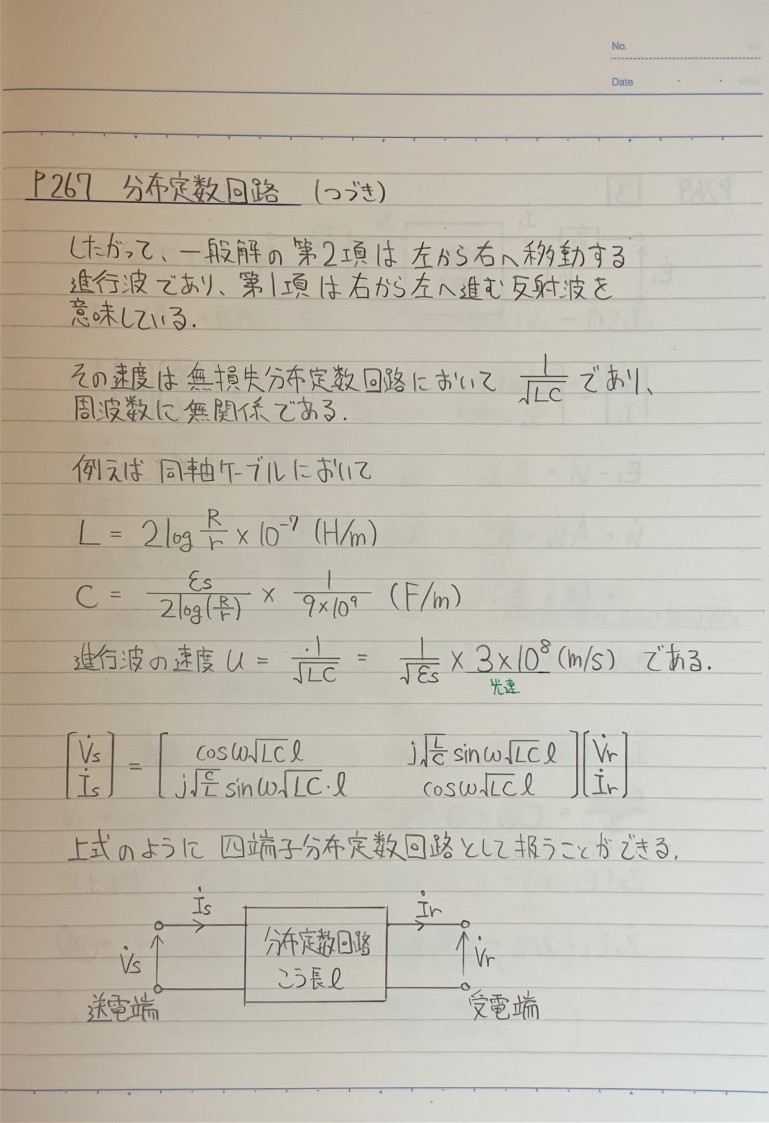 No.
Date
P267 分布定数回路 (つづき)
したがって、一般解の第2項は左から右へ移動する
進行波であり、第1項は右から左へ進む反射波を
意味している.
その速度は無損失分布定数回路において 1/√LC であり、
周波数に無関係である.
例えば同軸ケーブルにおいて
L = 2log R/r × 10⁻⁷ (H/m)
C = εs/2log(R/r) × 1/9×10⁹ (F/m)
進行波の速度 u = 1/√LC = 1/√εs × 3×10⁸ (m/s) である.
光速
[V̇s İs] = [cosω√LC l  j√L/C sinω√LC l  j√C/L sinω√LC・l  cosω√LC l] [V̇r İr]
上式のように四端子分布定数回路として扱うことができる.
İs İr
V̇s 分布定数回路 V̇r
こう長 l
送電端 受電端